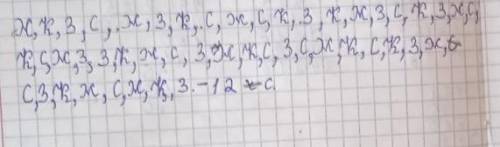 Ж, К, З, С, Ж, З, К, С, Ж, С, К, З, К, Ж, З, С, К, З, Ж, С,
К, С, Ж, З, З, К, Ж, С, З, Ж, К, С, З, С, Ж, К, С, К, З, Ж,
С, З, К, Ж, С, Ж, К, З. - 12 - С